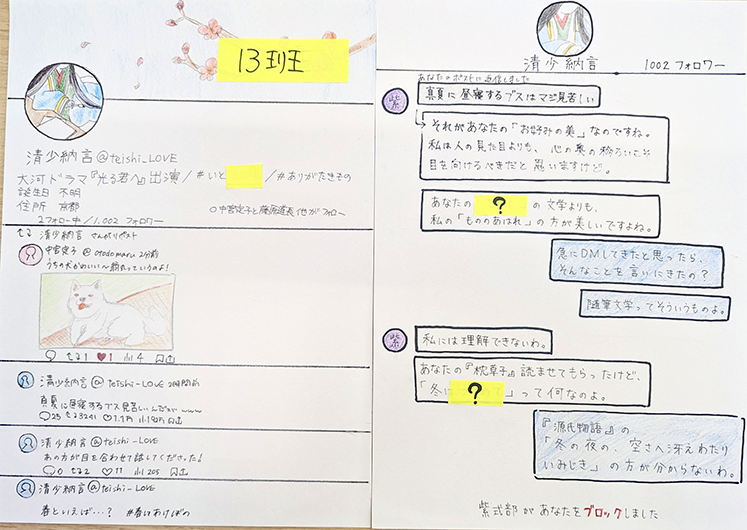 13班
清少納言@teishi_LOVE
大河ドラマ『光る君へ』出演/#いと /#ありがたきもの
誕生日 不明
住所 京都
2フォロー中/1.002フォロワー
○中宮定子と藤原道長他がフォロー
清少納言さんがリポスト
中宮定子@otodomaru 2分前
うちの犬かわいい〜 飼っているのよ!
1 1 4
清少納言@teishi_LOVE 2時間前
真夏に昼寝するブス見苦しいんだがwww
25 3241 1.1万
清少納言@teishi_LOVE
あの方が目を合わせて話してくださった!
0 2 11 205
清少納言@teishi_LOVE
春といえば…? #春はあけぼの
清少納言 1002フォロワー
あなたのポストに返信しました
紫
真夏に昼寝するブスはマジ見苦しい
それがあなたの「お好みの美」なのですね。
私は人の見た目よりも、心の奥の移ろいにこそ
目を向けるべきだと思いますけど。
あなたの ? の文学よりも、
私の「もののあはれ」の方が美しいですよね。
急にDMしてきたと思ったら、
そんなことを言いにきたの?
随筆文学ってそういうものよ。
紫
私には理解できないわ。
あなたの『枕草子』読ませてもらったけど、
「冬は ? 」って何なのよ。
『源氏物語』の
「冬の夜の、空さへ冴えわたり
いみじき」の方が分からないわ。
紫式部があなたをブロックしました